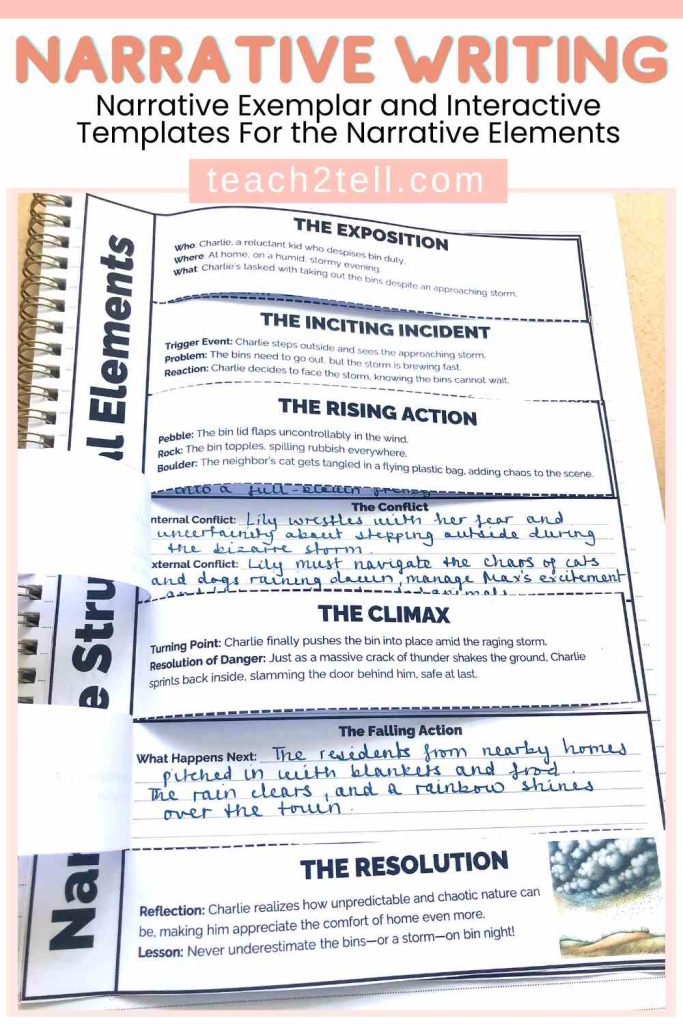 NARRATIVE WRITING
Narrative Exemplar and Interactive
Templates For the Narrative Elements
teach2tell.com
THE EXPOSITION
Who: Charlie, a reluctant kid who despises bin duty.
Where: At home, on a humid, stormy evening.
What: Charlie's tasked with taking out the bins despite an approaching storm.
THE INCITING INCIDENT
Trigger Event: Charlie steps outside and sees the approaching storm.
Problem: The bins need to go out, but the storm is brewing fast.
Reaction: Charlie decides to face the storm, knowing the bins cannot wait.
THE RISING ACTION
Pebble: The bin lid flaps uncontrollably in the wind.
Rock: The bin topples, spilling rubbish everywhere.
Boulder: The neighbor's cat gets tangled in a flying plastic bag, adding chaos to the scene.
into a full-
The Conflict
nternal Conflict: Lily wrestles with her fear and
uncertainity about stepping outside during
the bizarre storm.
xternal Conflict: Lily must navigate the chaos of cats
and dogs raining down, manage Max's excitement
THE CLIMAX
Turning Point: Charlie finally pushes the bin into place amid the raging storm.
Resolution of Danger: Just as a massive crack of thunder shakes the ground, Charlie
sprints back inside, slamming the door behind him, safe at last.
The Falling Action
What Happens Next: The residents from nearby homes
pitched in with blankets and food.
The rain clears, and a rainbow shines
over the town.
THE RESOLUTION
Reflection: Charlie realizes how unpredictable and chaotic nature can
be, making him appreciate the comfort of home even more.
Lesson: Never underestimate the bins—or a storm—on bin night!
Nar e Stru al Elements